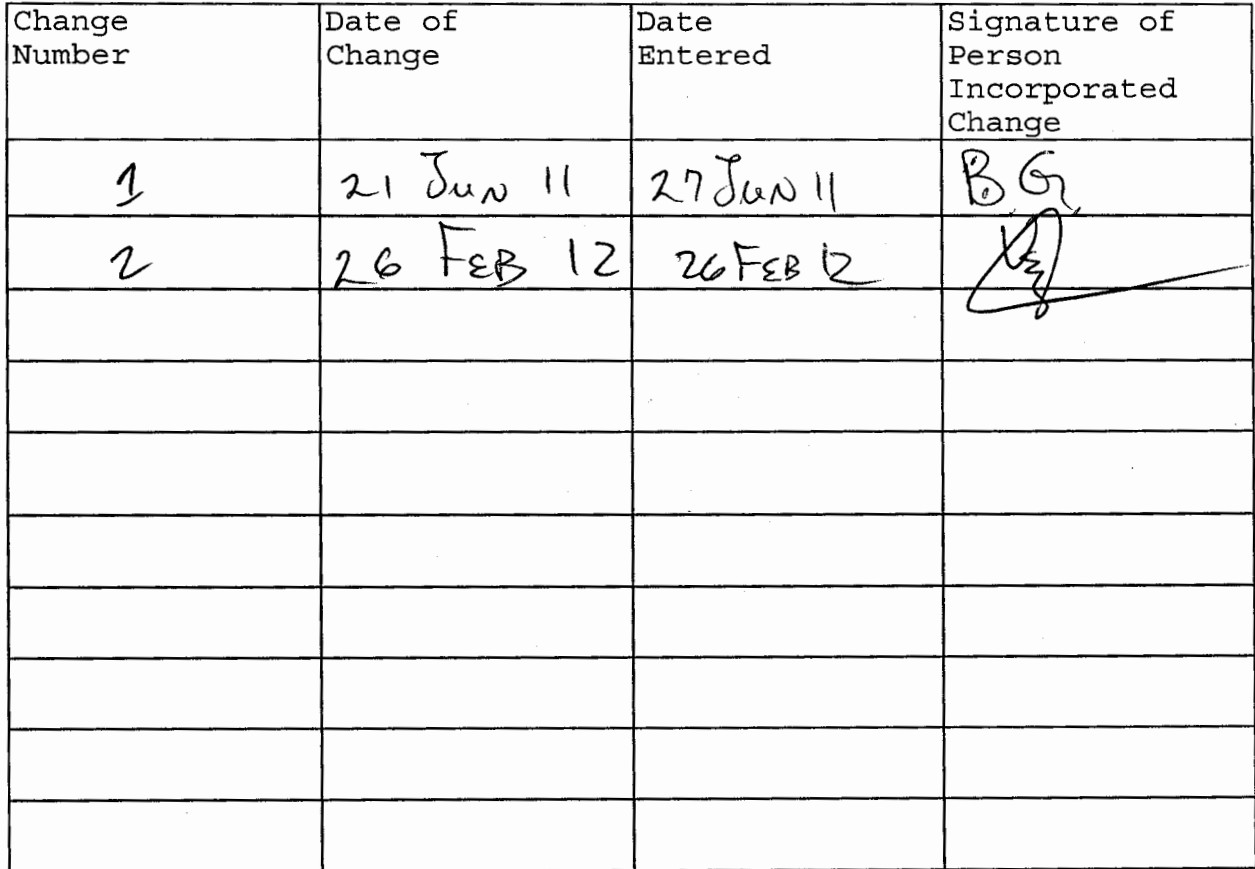 Change Number
Date of Change
Date Entered
Signature of Person Incorporated Change
1
21 Jun 11
27 Jun 11
B.G.
2
26 FEB 12
26 FEB 12